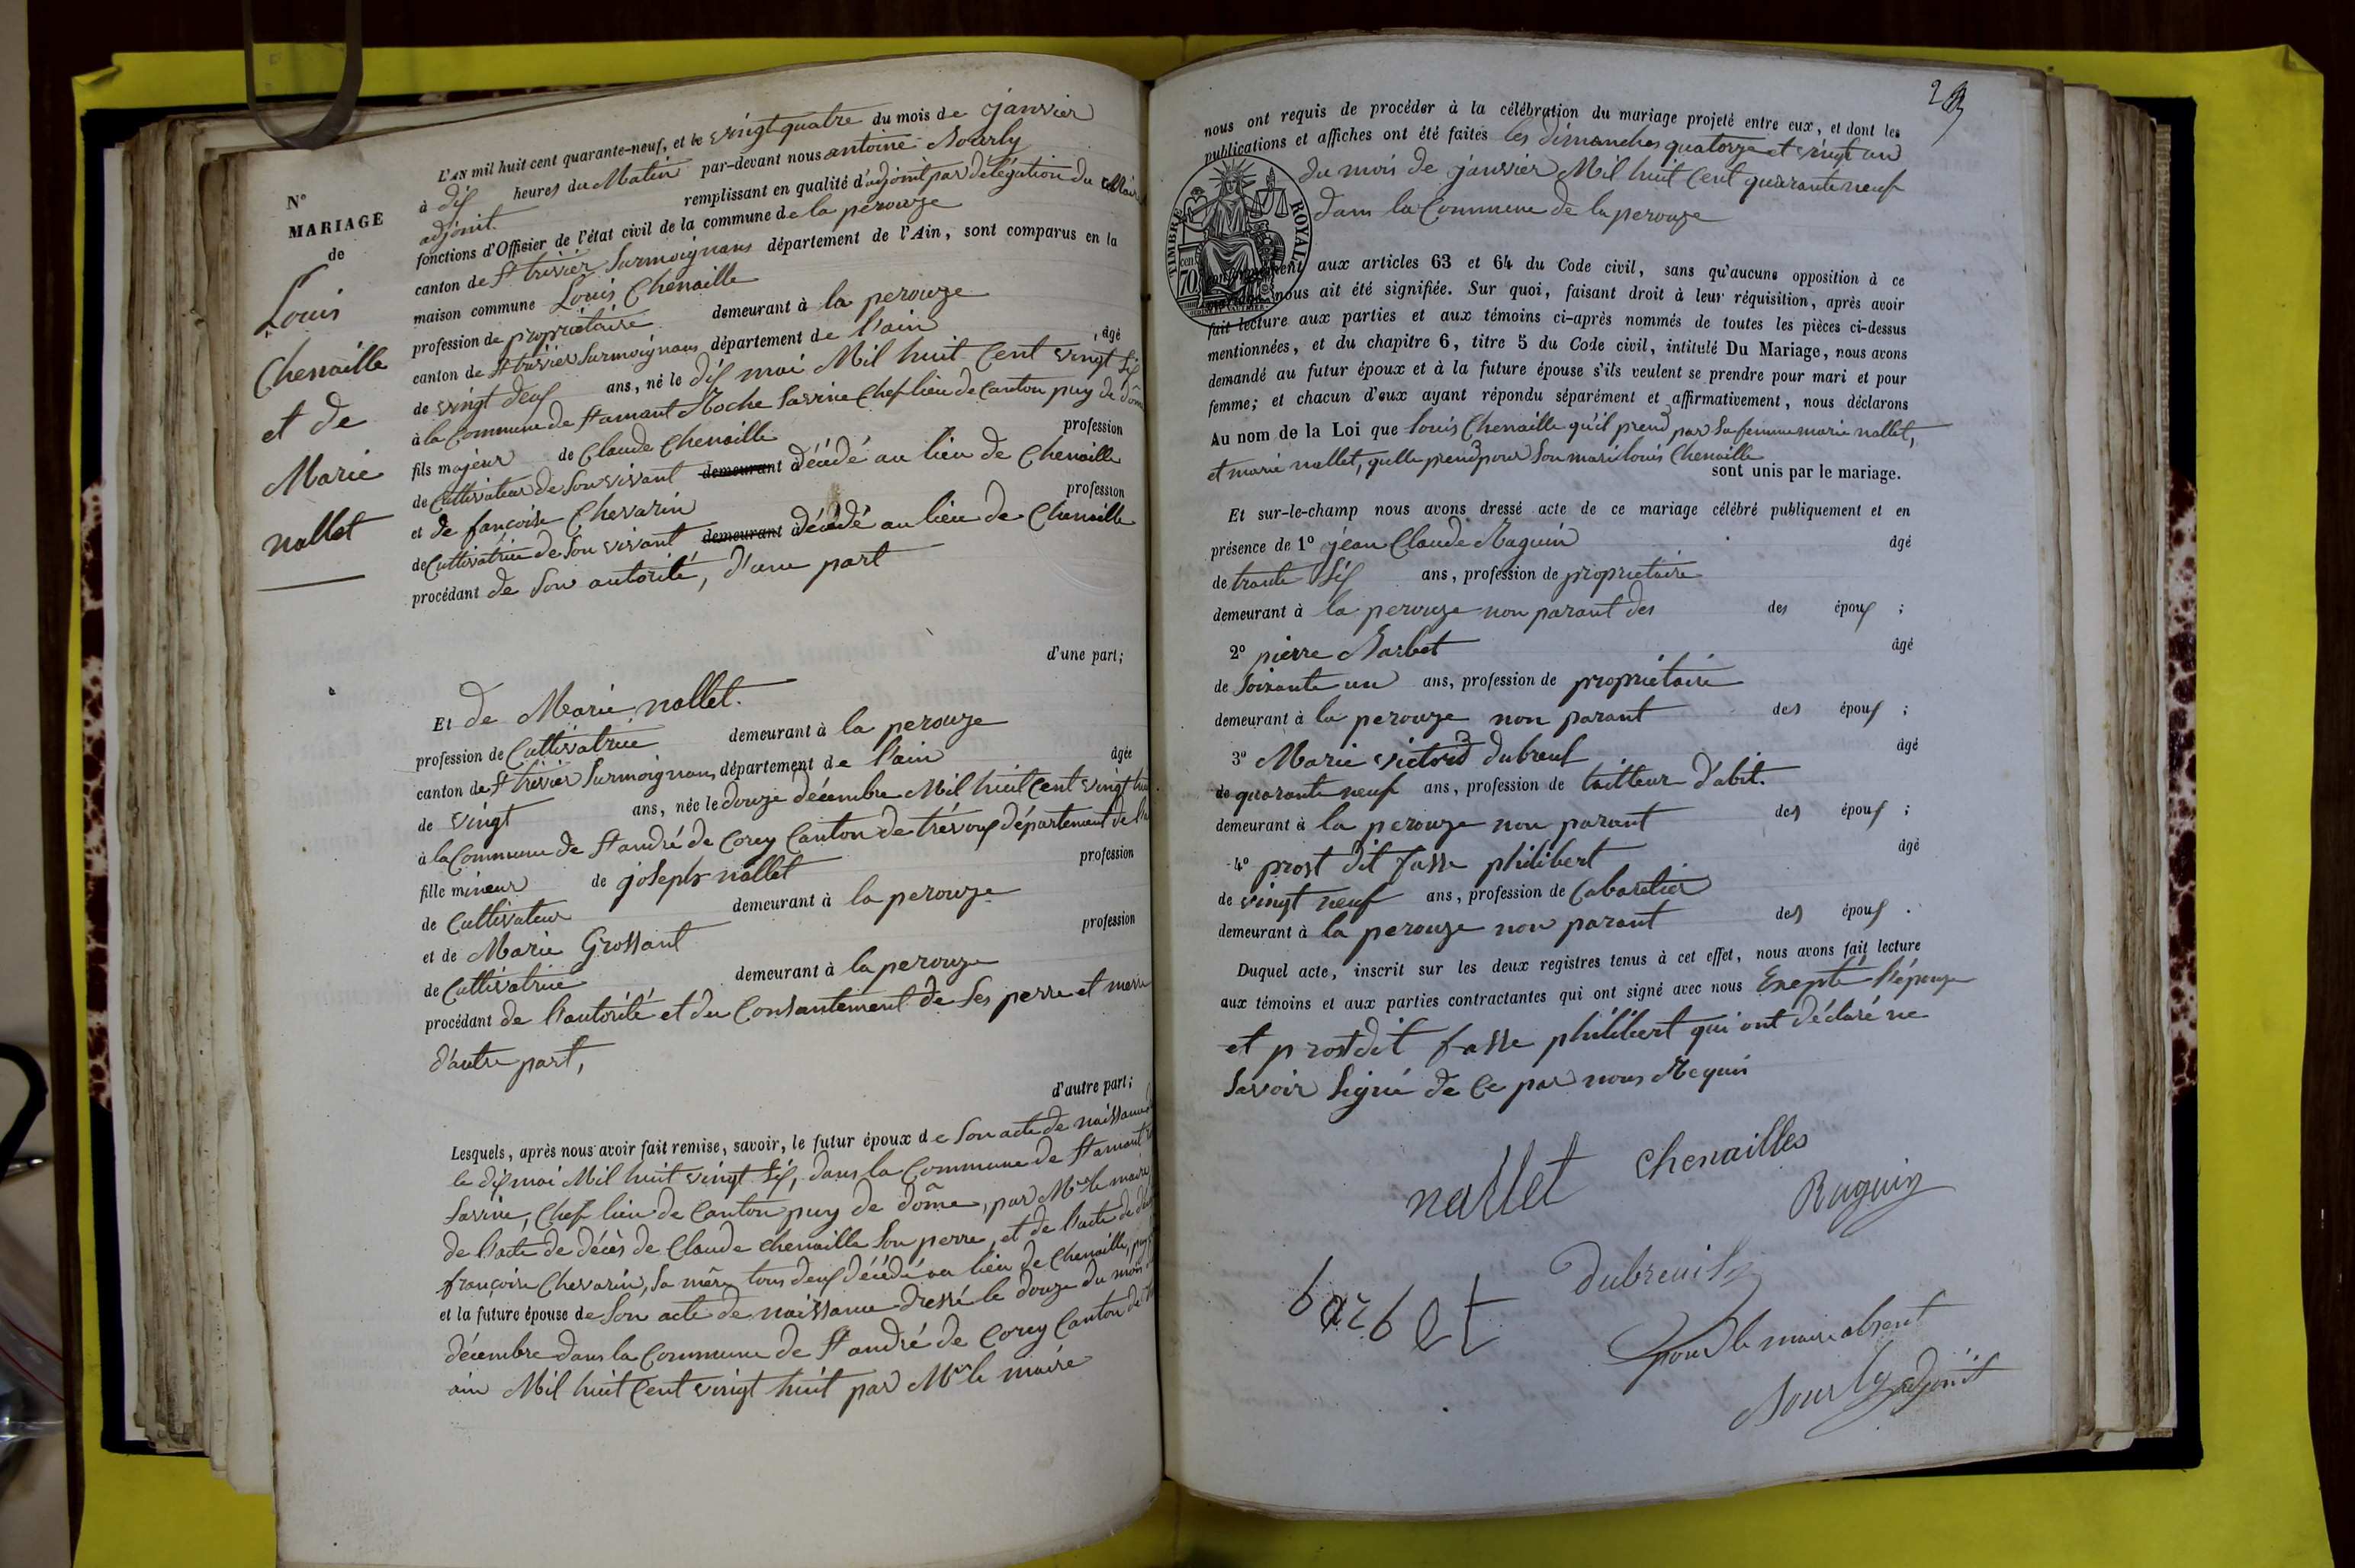 N°
MARIAGE
de
Louis
Chenaille
et de
Marie
nallet
L'AN mil huit cent quarante-neuf, et le vingt quatre du mois de janvier
à dix heures du Matin par-devant nous antoine Sourly
adjoint. remplissant en qualité d'adjoint par délégation du Maire
fonctions d'Officier de l'état civil de la commune de la perouze
canton de St trivier Surmoignans département de l'Ain, sont comparus en la
maison commune Louis Chenaille
profession de propriétaire demeurant à la perouze
canton de St trivier Surmoignans département de l'ain , âgé
de vingt deux ans, né le dix mai Mil huit Cent vingt Six
à la Commune de St amant Roche Savine Chef lieu de Canton puy de dôme
fils majeur de Claude Chenaille profession
de Cultivateur de Son vivant demeurant décédé au lieu de Chenaille
et de françoise Chevarin profession
de Cultivatrice de Son vivant demeurant décédé au lieu de Chenaille
procédant de Son autorité, d'une part
d'une part;
Et de Marie nallet.
profession de Cultivatrice demeurant à la perouze
canton de St trivier Surmoignans département de l'ain âgée
de vingt ans, née le douze décembre Mil huit Cent vingt
à la Commune de St andré de Corcy Canton de trévoux département de
fille mineur de joseph nallet profession
de Cultivateur demeurant à la perouze
et de Marie Grossant profession
de Cultivatrice demeurant à la perouze
procédant de l'autorité et du Consantement de Ses perre et merre
d'autre part,
d'autre part;
Lesquels, après nous avoir fait remise, savoir, le futur époux de Son acte de naissance
le dix mai Mil huit vingt Six, dans la Commune de St amant
Savine, Chef lieu de Canton puy de dôme, par Mr le maire
de l'acte de décès de Claude Chenaille Son perre, et de l'acte de
françoise Chevarin, Sa mère tous deux décédé au lieu de Chenaille,
et la future épouse de Son acte de naissance dressé le douze du mois
décembre dans la Commune de St andré de Corcy Canton de
ain Mil huit Cent vingt huit par Mr le maire
nous ont requis de procéder à la célébration du mariage projeté entre eux, et dont les
publications et affiches ont été faites les dimanches quatorze et vingt un
du mois de janvier Mil huit Cent quarante neuf
dans la Commune de la perouze
TIMBRE ROYAL
cen
70
conformément aux articles 63 et 64 du Code civil, sans qu'aucune opposition à ce
mariage nous ait été signifiée. Sur quoi, faisant droit à leur réquisition, après avoir
fait lecture aux parties et aux témoins ci-après nommés de toutes les pièces ci-dessus
mentionnées, et du chapitre 6, titre 5 du Code civil, intitulé Du Mariage, nous avons
demandé au futur époux et à la future épouse s'ils veulent se prendre pour mari et pour
femme; et chacun d'eux ayant répondu séparément et affirmativement, nous déclarons
Au nom de la Loi que louis Chenaille qu'il prend par Sa femme marie nallet,
et marie nallet, qu'elle prend pour Son mari louis Chenaille
sont unis par le mariage.
Et sur-le-champ nous avons dressé acte de ce mariage célébré publiquement et en
présence de 1° jean Claude Raguin âgé
de trante Six ans, profession de propriétaire
demeurant à la perouze non parant des des époux ;
2° pierre Barbet âgé
de Soixante un ans, profession de propriétaire
demeurant à la perouze non parant des époux ;
3° Marie victord dubreuf âgé
de quarante neuf ans, profession de tailleur d'abit.
demeurant à la perouze non parant des époux ;
4° prost dit fasse philibert âgé
de vingt neuf ans, profession de Cabaretier
demeurant à la perouze non parant des époux .
Duquel acte, inscrit sur les deux registres tenus à cet effet, nous avons fait lecture
aux témoins et aux parties contractantes qui ont signé avec nous Exepté l'épouze
et prost dit fasse philibert qui ont déclaré ne
Savoir Signé de Ce par nous Requis
nallet chenailles
Raguin
barbet dubreuil
pour le maire absent
Sourly adjoint